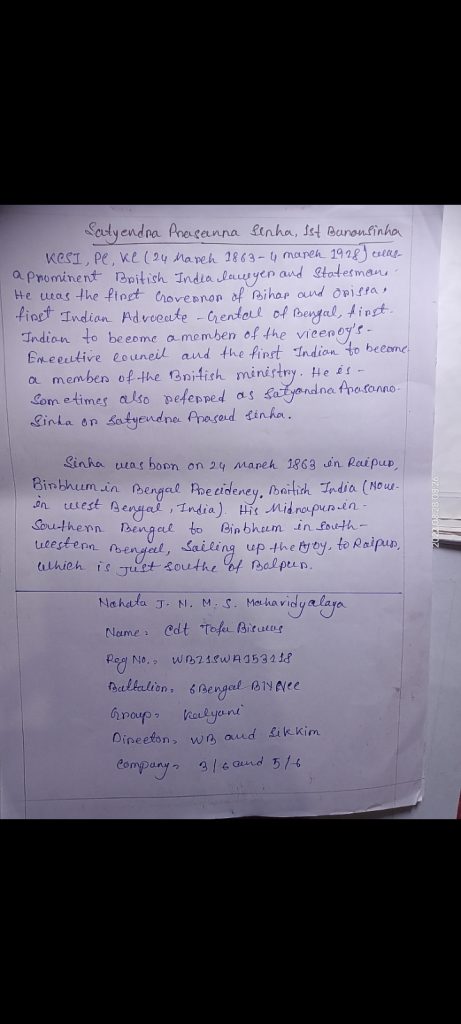 Satyendra Prasanna Sinha, 1st Baron Sinha
KCSI, PC, KC (24 March 1863 - 4 march 1928) was
a prominent British India lawyer and Statesman.
He was the first Governor of Bihar and Orissa,
first Indian Advocate - Gentall of Bengal, first
Indian to become a member of the viceroy's -
Executive council and the first Indian to become
a member of the British ministry. He is -
Sometimes also referred as Satyandra Prasanno
Sinha or Satyendra Prasad Sinha.
Sinha was born on 24 march 1863 in Raipur,
Birbhum in Bengal Precidency, British India (Now
in west Bengal, India). His Midnapur in
Southern Bengal to Birbhum in South -
western Bengal, Sailing up the Ajoy, to Raipur,
which is just southe of Bolpur.
Nahata J. N. M. S. Mahavidyalaya
Name: Cdt Tofa Biswas
Reg No.: WB21SWA153118
Battalion: 6 Bengal BN NCC
Group: Kalyani
Director: WB and Sikkim
Company: 3/6 and 5/6